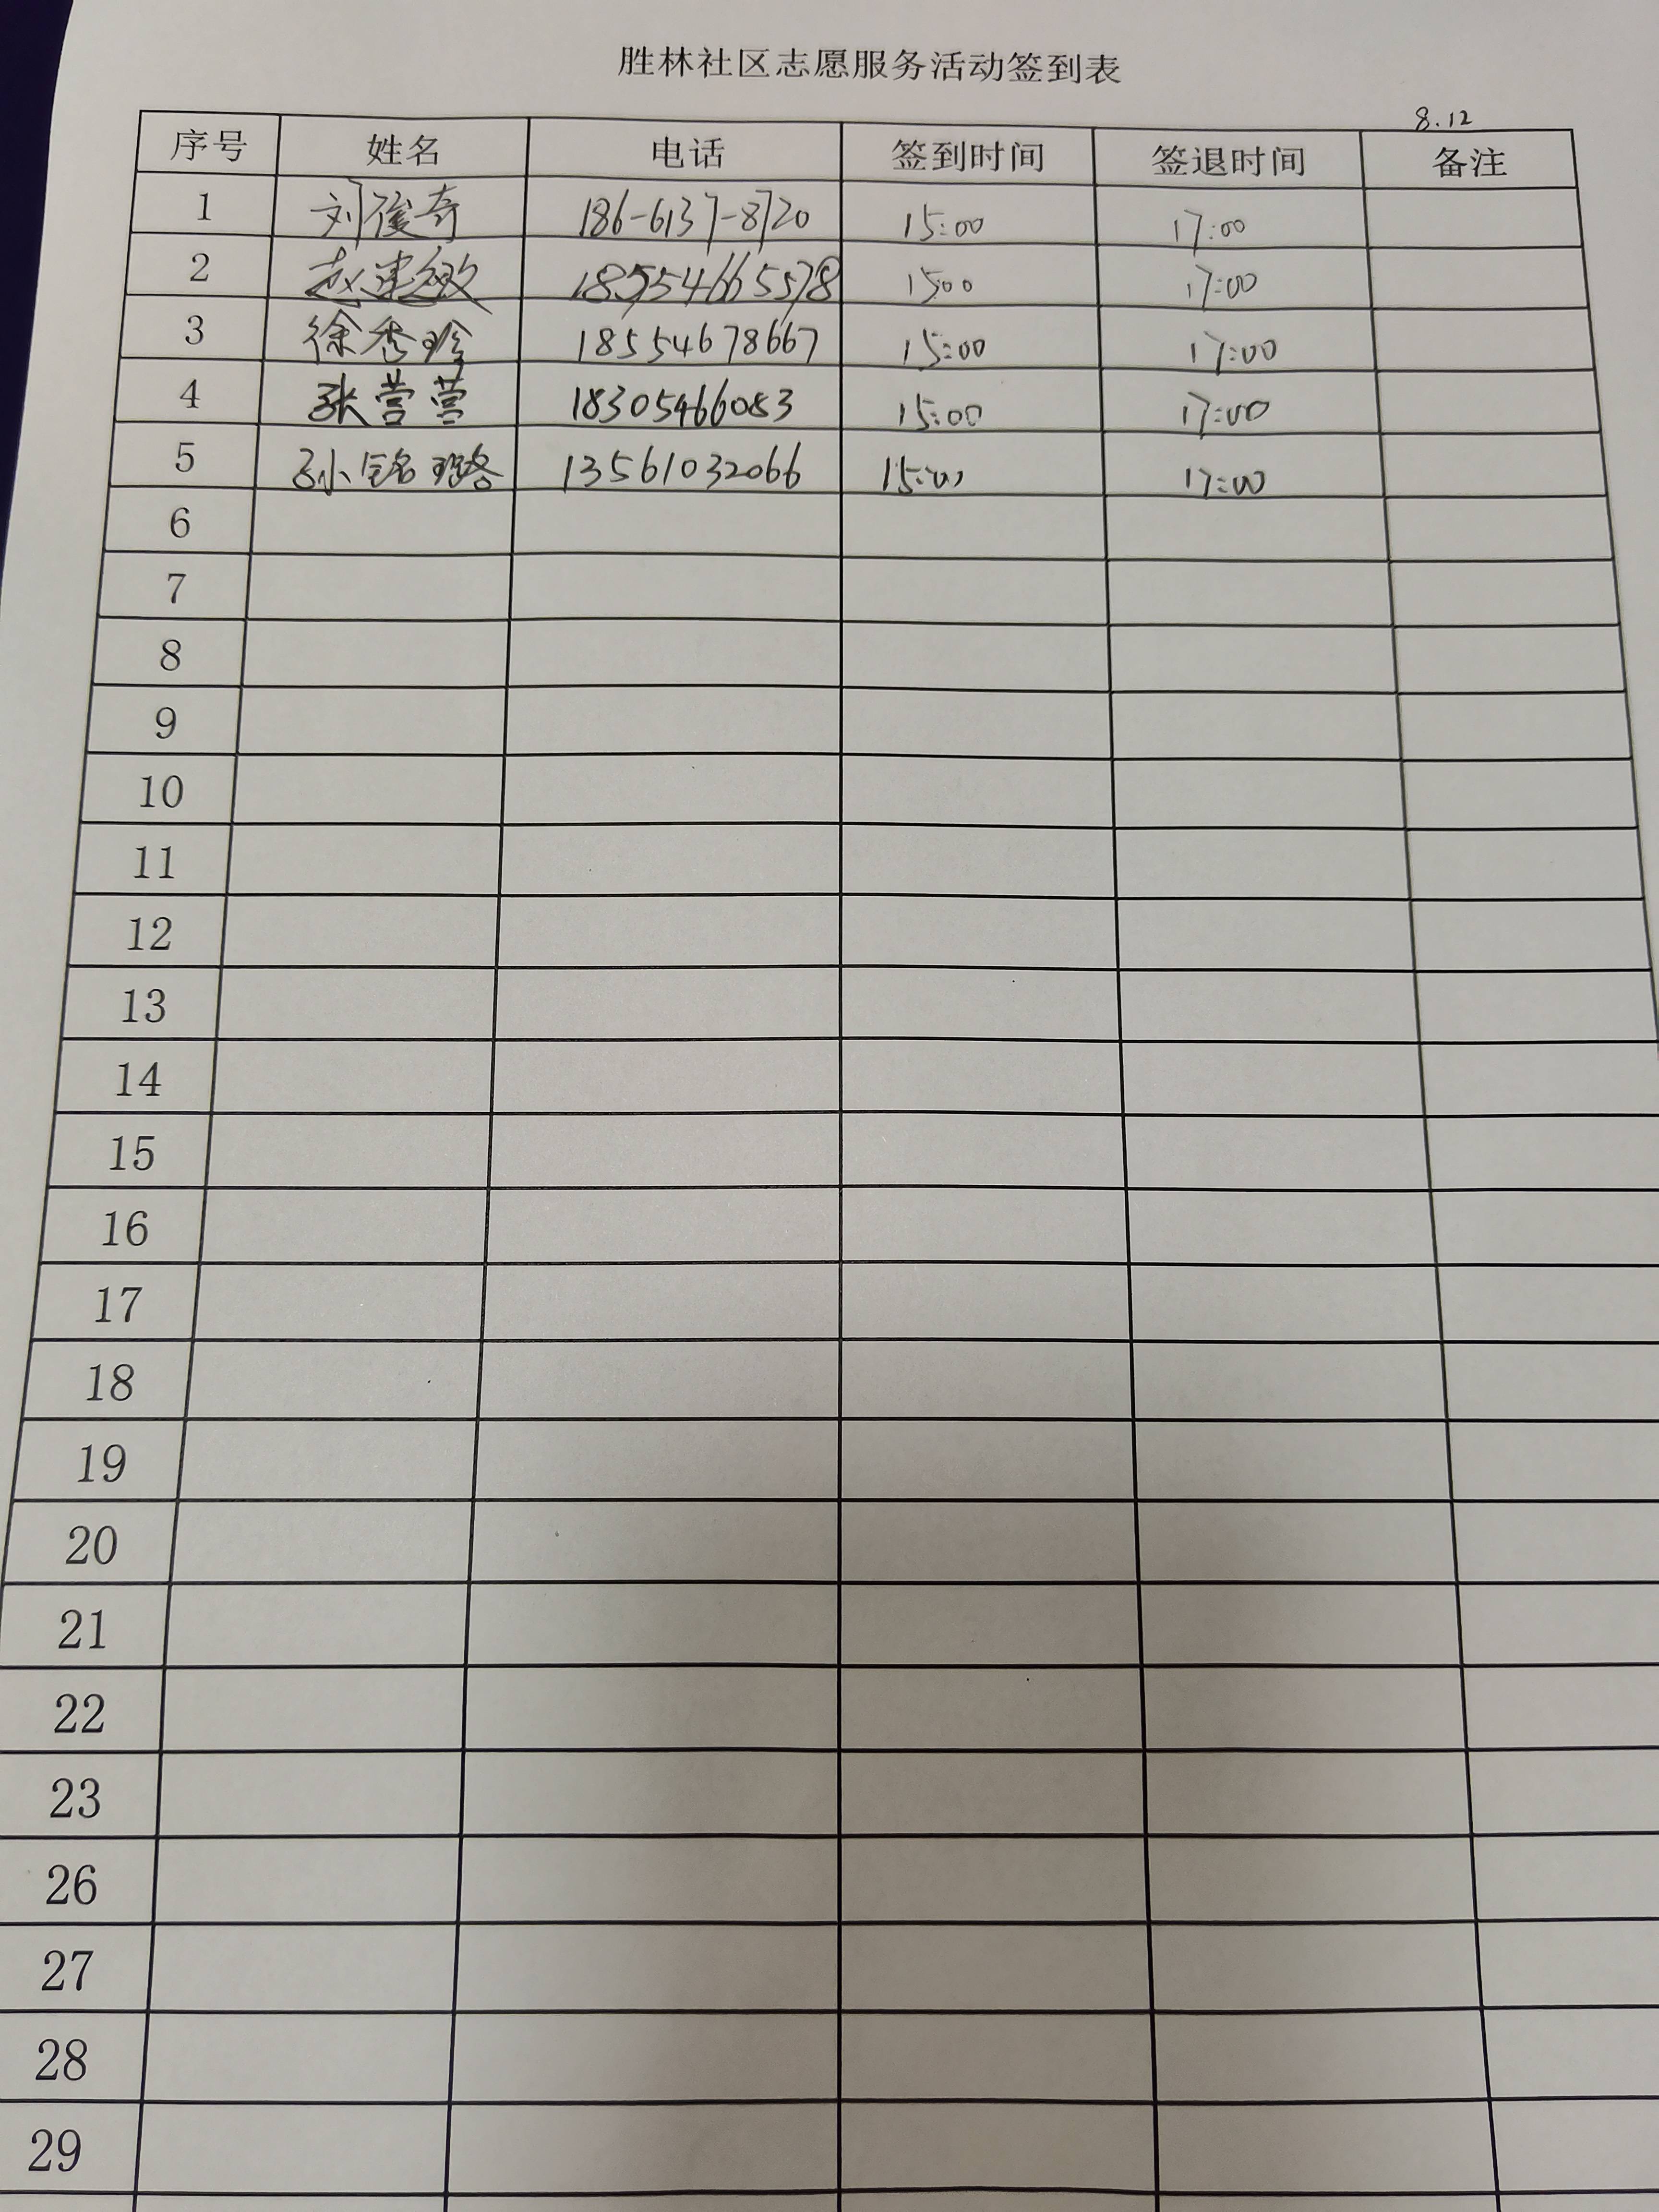 胜林社区志愿服务活动签到表
8.12
序号 姓名 电话 签到时间 签退时间 备注
1 刘俊奇 186-6137-8720 15:00 17:00
2 赵建敏 18554665578 1500 17:00
3 徐秀珍 18554678667 15:00 17:00
4 张营营 18305466083 15:00 17:00
5 孙铭璐 13561032066 15:00 17:00
6
7
8
9
10
11
12
13
14
15
16
17
18
19
20
21
22
23
26
27
28
29